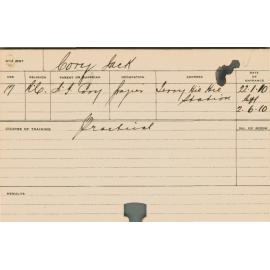 Cory Jack
AGE RELIGION PARENT OR GUARDIAN OCCUPATION ADDRESS DATE OF ENTRANCE
17 R.C. Cory Terry Hie Hie Station 22-1-10
2-6-10
COURSE OF TRAINING
Practical
RESULTS